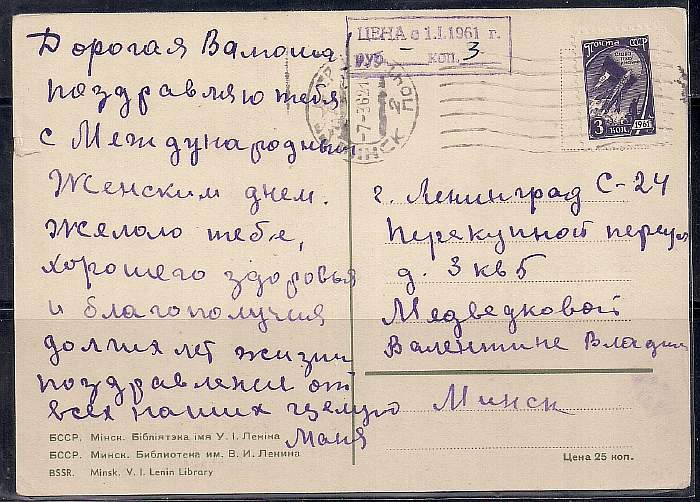 Дорогая Валюша
поздравляю тебя
с Международным
Женским днем.
Желаю тебе,
хорошего здоровья
и благополучия
долгих лет жизни
поздравления от
всех наших целую
Маня
БССР. Мінск. Бібліятэка імя У. І. Леніна
БССР. Минск. Библиотека им. В. И. Ленина
BSSR. Minsk. V. I. Lenin Library
ЦЕНА с 1.I.1961 г.
руб. - коп. 3
МИНСК
ПОЧТА СССР
3 КОП. 1961
г. Ленинград С-24
Перекупной переул
д. 3 кв 5
Медведковой
Валентине Владим
Минск
Цена 25 коп.